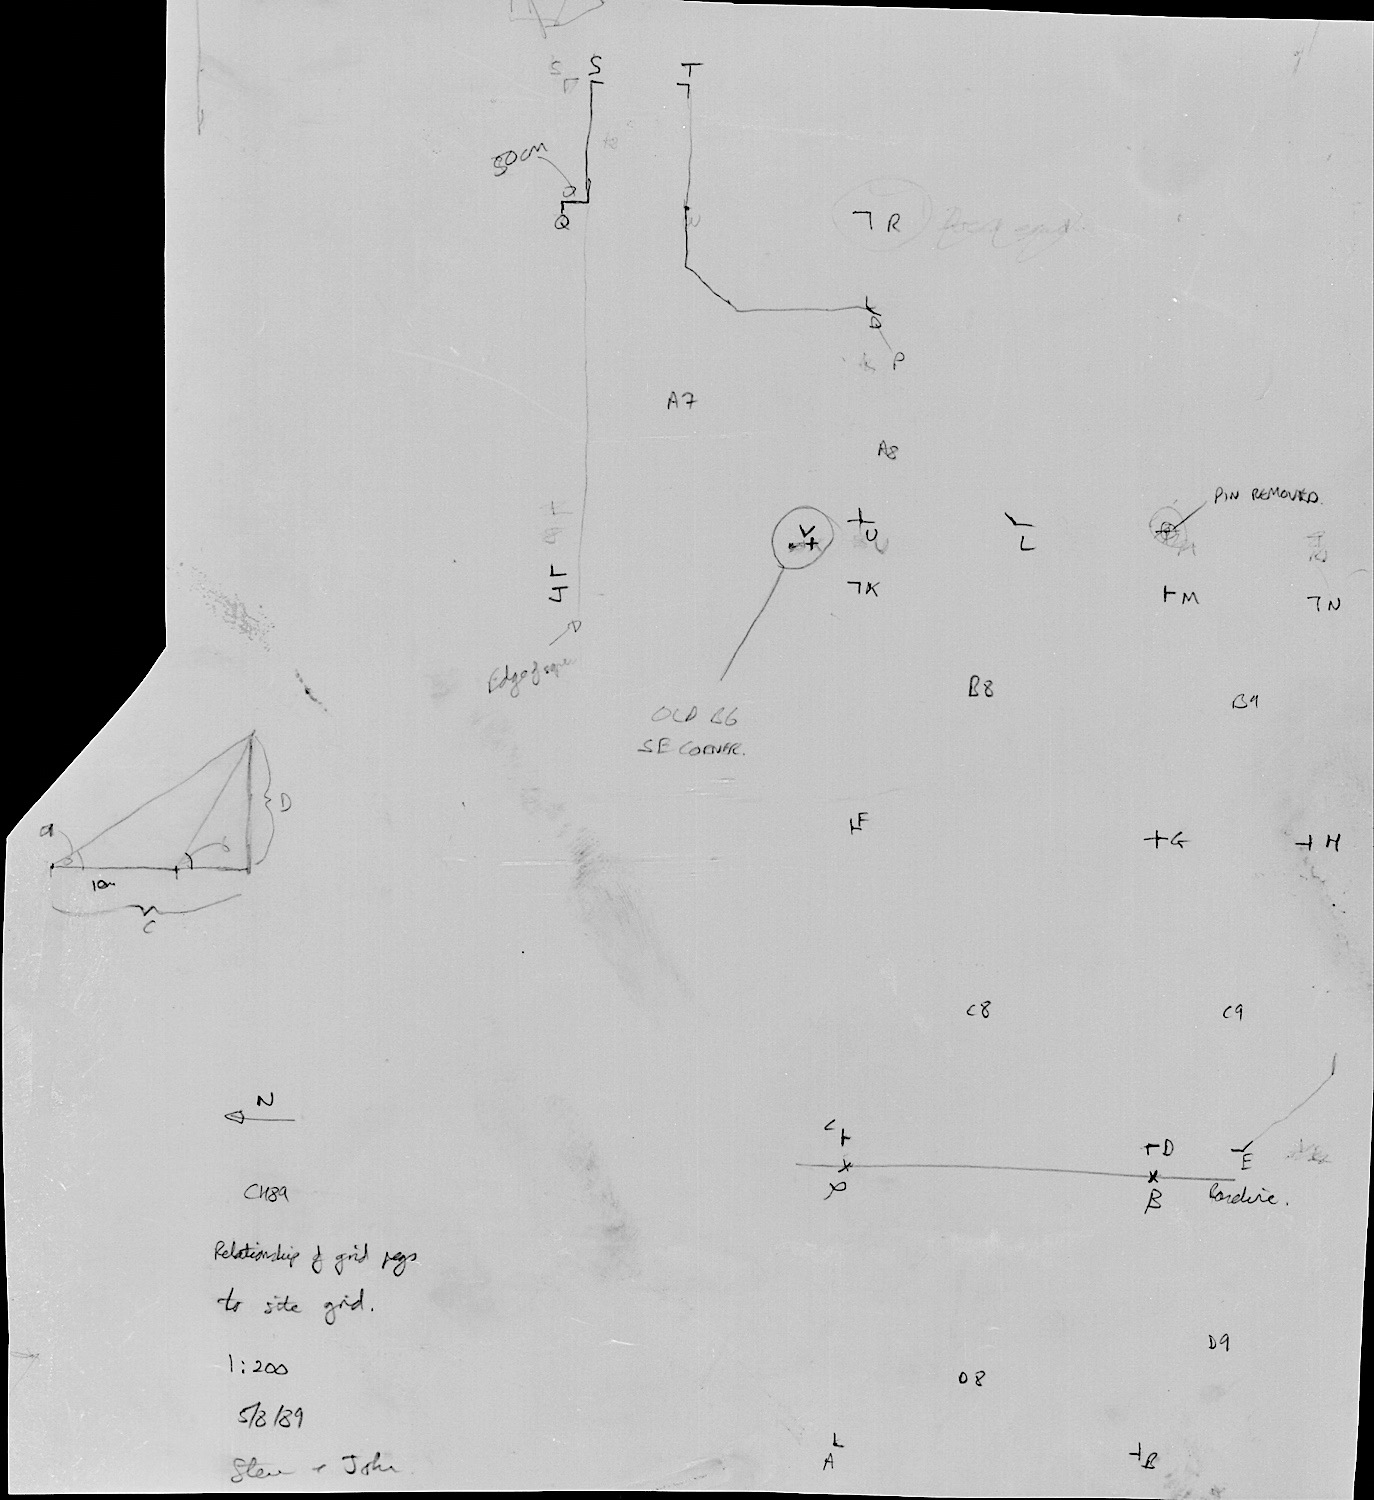 S
T
50cm
Q
R
P
A7
A8
PIN REMOVED.
V
U
L
K
M
N
Edge of
B8
B9
OLD B6
SE CORNER.
D
a
F
G
H
10m
C
C8
C9
N
C
D
E
B
Baseline.
CH89
Relationship of grid pegs
to site grid.
1:200
5/8/89
Steve + John
D9
D8
A
B